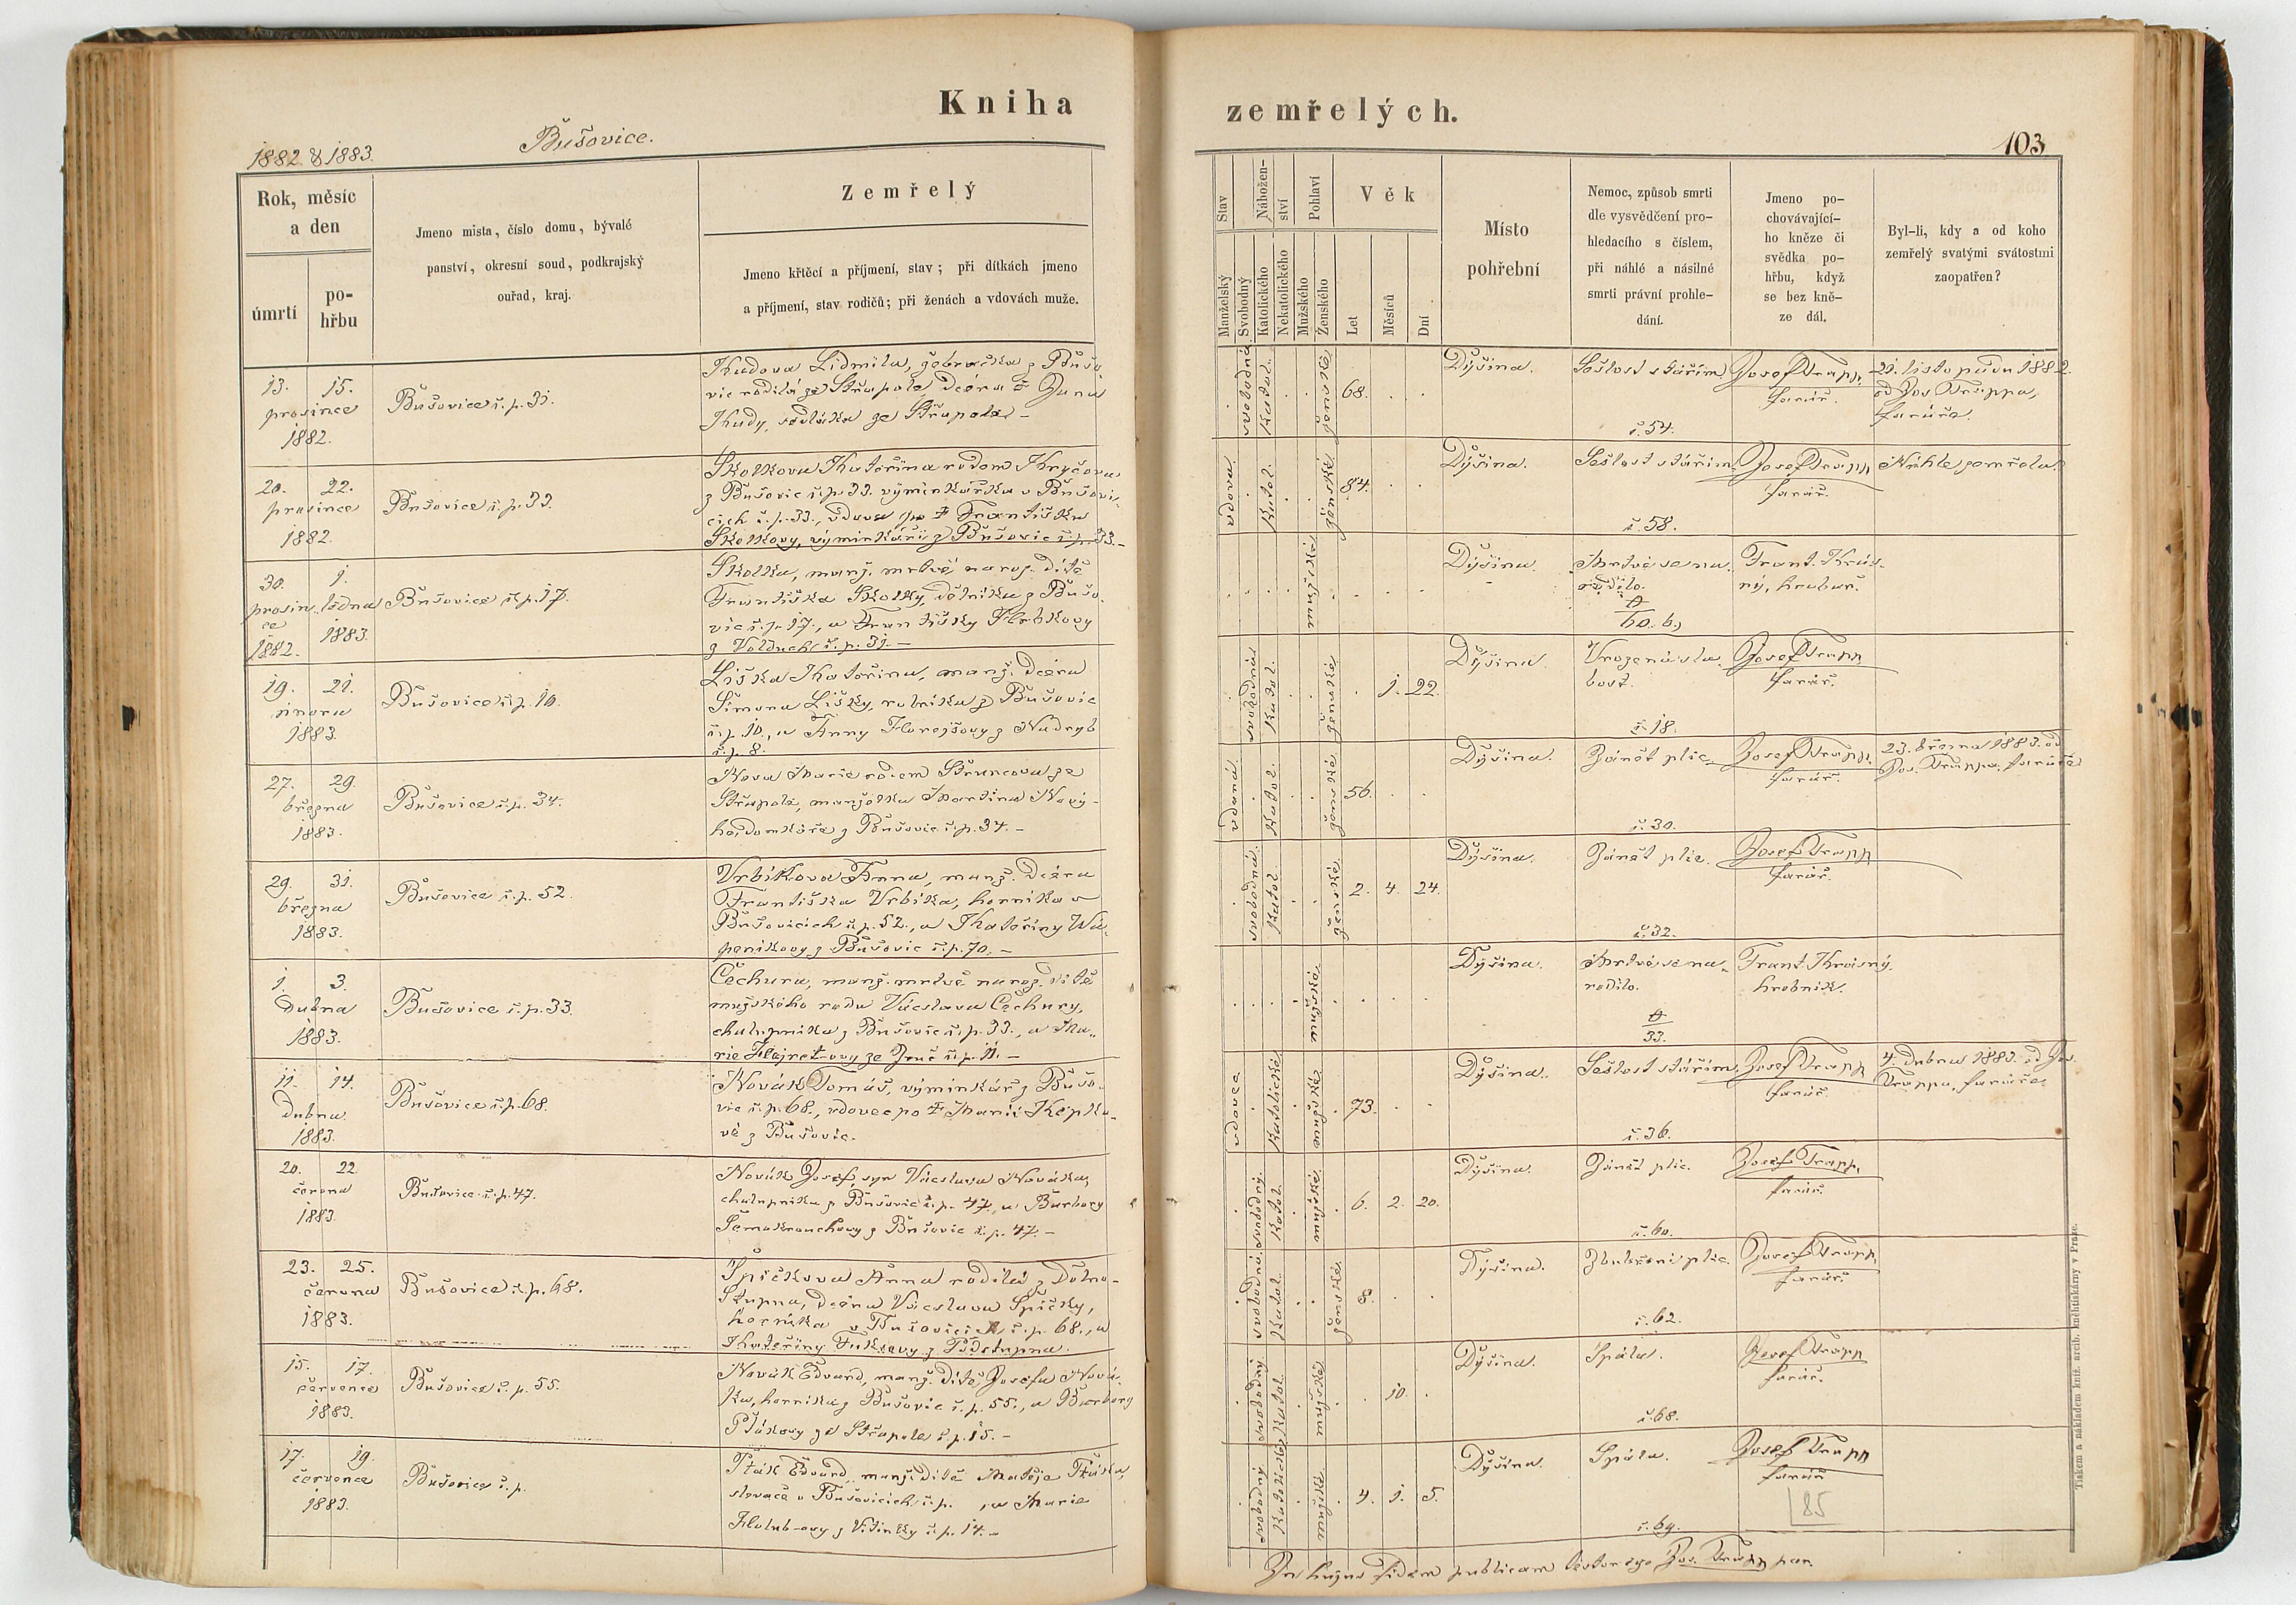 Kniha zemřelých.
1882 & 1883. Bušovice. 103
Rok, měsíc
a den
úmrtí
po-
hřbu
Jmeno mista, číslo domu, bývalé
panství, okresní soud, podkrajský
ouřad, kraj.
Zemřelý
Jmeno křtěcí a příjmení, stav; při dítkách jmeno
a příjmení, stav rodičů; při ženách a vdovách muže.
Stav
Manželský
Svobodný
Nábožen-
ství
Katolického
Nekatolického
Pohlaví
Mužského
Ženského
Věk
Let
Měsíců
Dní
Místo
pohřební
Nemoc, způsob smrti
dle vysvědčení pro-
hledacího s číslem,
při náhlé a násilné
smrti právní prohle-
dání.
Jmeno po-
chovávající-
ho kněze či
svědka po-
hřbu, když
se bez kně-
ze dál.
Byl-li, kdy a od koho
zemřelý svatými svátostmi
zaopatřen?
13. 15.
prosince
1882.
Bušovice č. p. 31.
Lidmila, žebračka z Bušo-
vic rodilá ze Střapole dcera † Jana
sedláka ze Střapole –
svobodná
Katol.
ženské
68.
Dýšina.
Sešlost stářím
č. 54.
Josef Trapp,
farář.
21. listopadu 1882.
od Jos. Trappa,
faráře.
20. 22.
prosince
1882.
Bušovice č. p. 33.
Skolkova Kateřina rodem
z Bušovic č. p. 33. výminkářka v Bušovi-
cích č. p. 33., vdova po † Františku
výminkáři z Bušovic č. p. 33. –
vdova
Katol.
ženské
84.
Dýšina.
Sešlost stářím
č. 58.
Josef Trapp
farář.
Náhle zemřela.
30. 1.
prosin- ledna
ce
1882. 1883.
Bušovice č. p. 17.
Skolka, manž. mrtvě naroz. dítě
Františka Skolky, dělníka z Bušo-
vic č. p. 17., a Františky
z Volduch č. p. 31. –
mužské
Dýšina.
Mrtvě se na-
rodilo.
60. b.
Frant. Krás-
ný, hrobař.
19. 21.
února
1883.
Bušovice č. p. 10.
Liška Kateřina, manž. dcera
Šimona Lišky, rolníka z Bušovic
č. p. 10., a Anny z Nadryb
č. p. 8.
svobodná
Katol.
ženské
1. 22.
Dýšina.
Vrozená sla-
bost.
č. 18.
Josef Trapp
farář.
27. 29.
března
1883.
Bušovice č. p. 34.
Nová Marie rodem ze
Střapole, manželka Martina Nový-
ho, domkáře z Bušovic č. p. 34. –
vdaná
Katol.
ženské
56.
Dýšina.
Zánět plic.
č. 30.
Josef Trapp,
farář.
23. března 1883. od
Jos. Trappa, faráře
29. 31.
března
1883.
Bušovice č. p. 52.
Vrbíkova Anna, manž. dcera
Františka Vrbíka, horníka v
Bušovicích č. p. 52., a Kateřiny Vá-
peníkovy z Bušovic č. p. 70. –
svobodná
Katol.
ženské
2. 4. 24.
Dýšina.
Zánět plic.
č. 32.
Josef Trapp
farář.
1. 3.
dubna
1883.
Bušovice č. p. 33.
Čechura, manž. mrtvě naroz. dítě
mužského rodu Václava Čechury,
chalupníka z Bušovic č. p. 33., a Ma-
rie ze Zruč č. p. 11. –
mužské
Dýšina.
Mrtvě se na-
rodilo.
33.
Frant. Krásný,
hrobník.
11. 14.
dubna
1883.
Bušovice č. p. 68.
Novák Tomáš, výminkář z Bušo-
vic č. p. 68., vdovec po † Marii Kepko-
vé z Bušovic.
vdovec
Katolické
mužské
73.
Dýšina.
Sešlost stářím.
č. 36.
Josef Trapp
farář.
4. dubna 1883. od Jos.
Trappa, faráře.
20. 22.
června
1883.
Bušovice č. p. 47.
Novák Josef, syn Václava Nováka,
chalupníka z Bušovic č. p. 47., a Barbory
z Bušovic č. p. 47. –
svobodný.
Katol.
mužské
6. 2. 20.
Dýšina.
Zánět plic.
č. 60.
Josef Trapp,
farář.
23. 25.
června
1883.
Bušovice č. p. 68.
Špičkova Anna rodilá z Dolno-
Stupna, dcera Václava Špičky,
horníka v Bušovicích č. p. 68., a
Kateřiny Fuksovy z
svobodná.
Katol.
ženské
8.
Dýšina.
plic.
č. 62.
Josef Trapp,
farář.
15. 17.
července
1883.
Bušovice č. p. 55.
Novák Edvard, manž. dítě Josefa Nová-
ka, horníka z Bušovic č. p. 55., a Barbory
Ptákovy ze Střapole č. p. 15. –
svobodný
Katol.
mužské
10.
Dýšina.
Spála.
č. 68.
Josef Trapp
farář.
17. 19.
července
1883.
Bušovice č. p.
Pták Edvard, manž. dítě Matěje Ptáka,
slevače v Bušovicích č. p. , a Marie
Holub-ovy z Vitinky č. p. 14. –
svobodný
Katolické
mužské
4. 1. 5.
Dýšina.
Spála.
č. 69.
Josef Trapp
farář
85
In hujus fidem publicam testor ego Jos. Trapp par.
Tiskem a nákladem kníž. arcib. knihtiskárny v Praze.